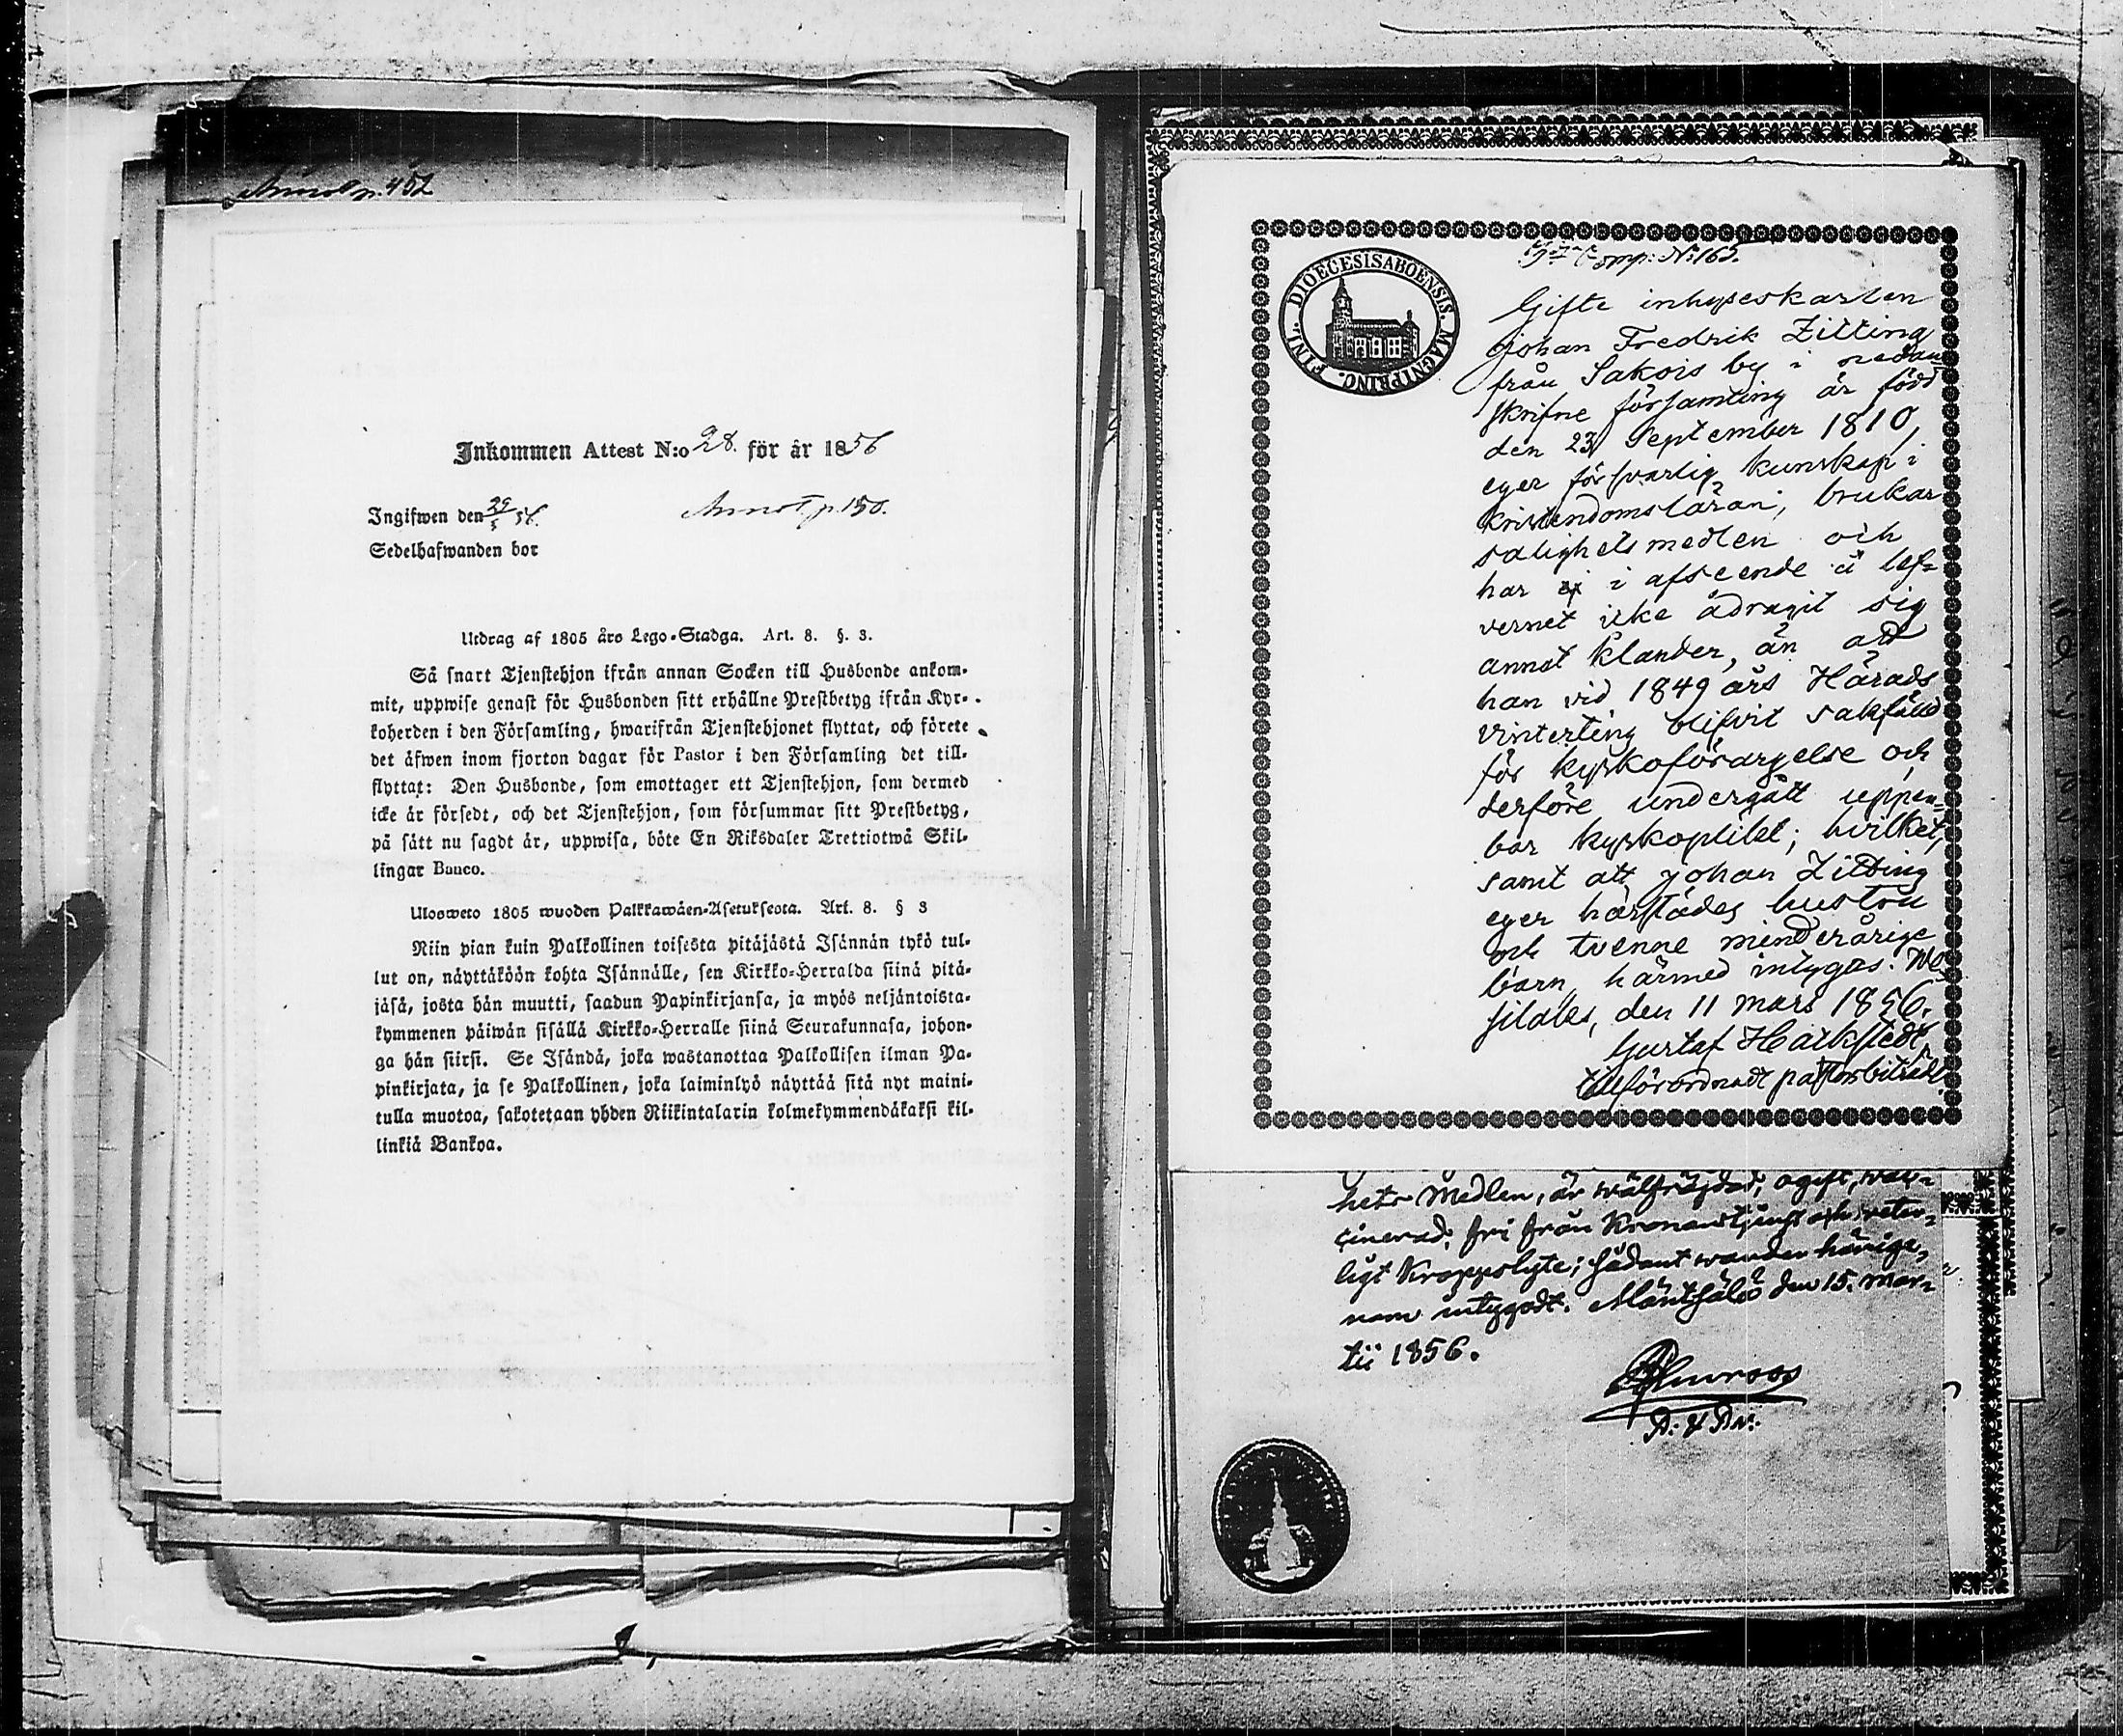 Annot p. 452
Inkommen Attest N:o 28. för år 1856
Ingifwen den 29/5 56.
Annot. p. 150.
Sedelhafwanden bor
Utdrag af 1805 års Lego-Stadga. Art. 8. §. 3.
Så snart Tjenstehjon ifrån annan Socken till Husbonde ankom-
mit, uppwise genast för Husbonden sitt erhållne Prestbetyg ifrån Kyr-
koherden i den Församling, hwarifrån Tjenstehjonet flyttat, och förete
det äfwen inom fjorton dagar för Pastor i den Församling det till-
flyttat: Den Husbonde, som emottager ett Tjenstehjon, som dermed
icke är försedt, och det Tjenstehjon, som försummar sitt Prestbetyg,
på sätt nu sagdt är, uppwisa, böte En Riksdaler Trettiotwå Skil-
lingar Banco.
Ulosweto 1805 wuoden Palkkawäen-Asetuksesta. Art. 8. § 3
Niin pian kuin Palkollinen toisesta pitäjästä Isännän tykö tul-
lut on, näyttäköön kohta Isännälle, sen Kirkko-Herralda siinä pitä-
jäsä, josta hän muutti, saadun Papinkirjansa, ja myös neljäntoista-
kymmenen päiwän sisällä Kirkko-Herralle siinä Seurakunnasa, johon-
ga hän siirsi. Se Isändä, joka wastanottaa Palkollisen ilman Pa-
pinkirjata, ja se Palkollinen, joka laiminlyö näyttää sitä nyt maini-
tulla muotoa, sakotetaan yhden Riikintalarin kolmekymmendäkaksi kil-
linkiä Bankoa.
DIOECESIS ABOENSIS. MAGNI PRINC. FINL.
Comp: N: 165.
Gifte inhyseskarlen
Johan Fredrik Zitting
från Sakois by i nedan
skrifne församling är född
den 23 September 1810,
eger försvarlig kunskap i
kristendomsläran, brukar
salighetsmedlen och
har ej i afseende å lef-
vernet icke ådragit sig
annat klander, än att
han vid 1849 års Härads
vinterting blifvit sakfälld
för kyrkoförargelse och
derföre undergått uppen-
bar kyrkoplikt; hvilket,
samt att Johan Zitting
eger härstädes hustru
och tvenne minderårige
barn, härmed intygas. Mo
jilabs, den 11 mars 1856.
Gustaf
tillförordnadt pastorsbiträde
hets Medlen, är wälfräjdad, ogift, vac-
cinerad, fri från Kronans tjenst och veter-
ligt Kroppslyte; sådant warder härige-
nom intygadt. Mäntsälä den 15. Mar-
tii 1856.